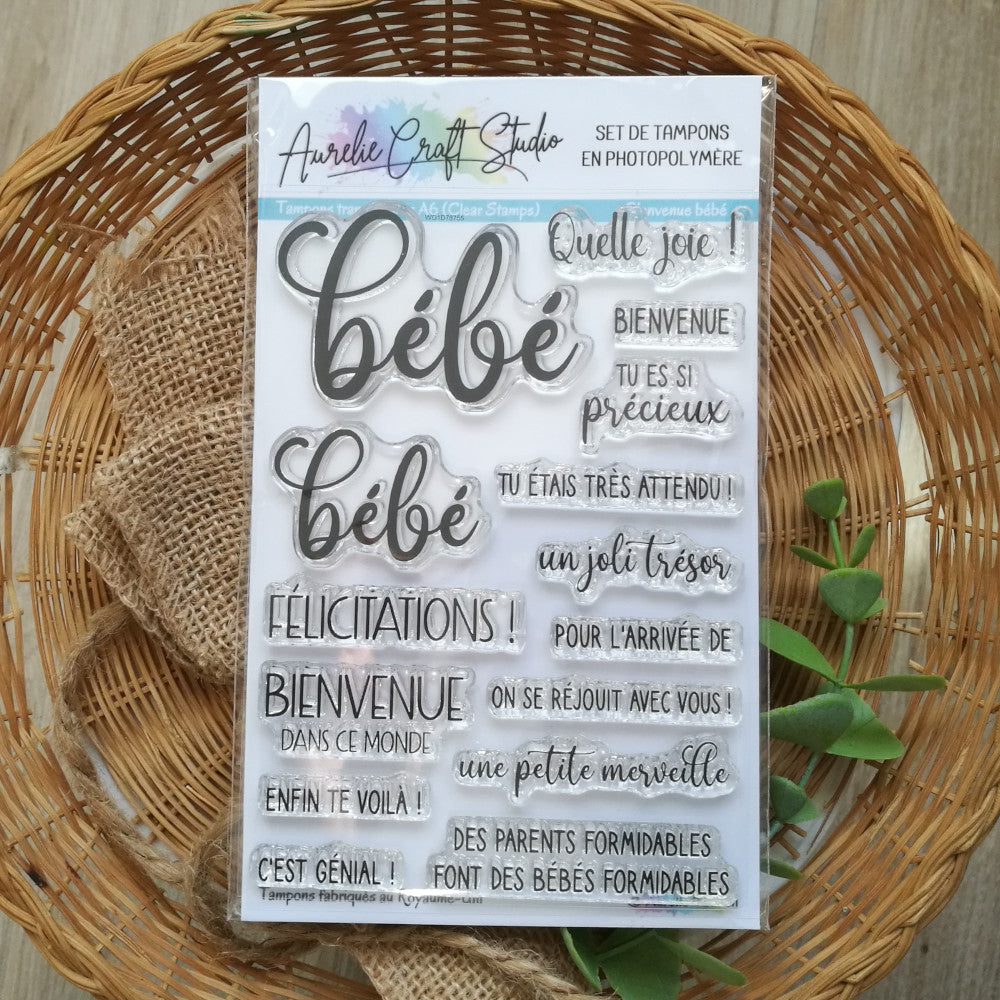 Aurelie Craft Studio
SET DE TAMPONS
EN PHOTOPOLYMÈRE
Tampons A6 (Clear Stamps)
Bienvenue bébé
WO1D78755
bébé
Quelle joie !
BIENVENUE
TU ES SI
précieux
bébé
TU ÉTAIS TRÈS ATTENDU !
un joli trésor
FÉLICITATIONS !
POUR L'ARRIVÉE DE
BIENVENUE
DANS CE MONDE
ON SE RÉJOUIT AVEC VOUS !
une petite merveille
ENFIN TE VOILÀ !
DES PARENTS FORMIDABLES
FONT DES BÉBÉS FORMIDABLES
C'EST GÉNIAL !
Tampons fabriqués au Royaume-Uni